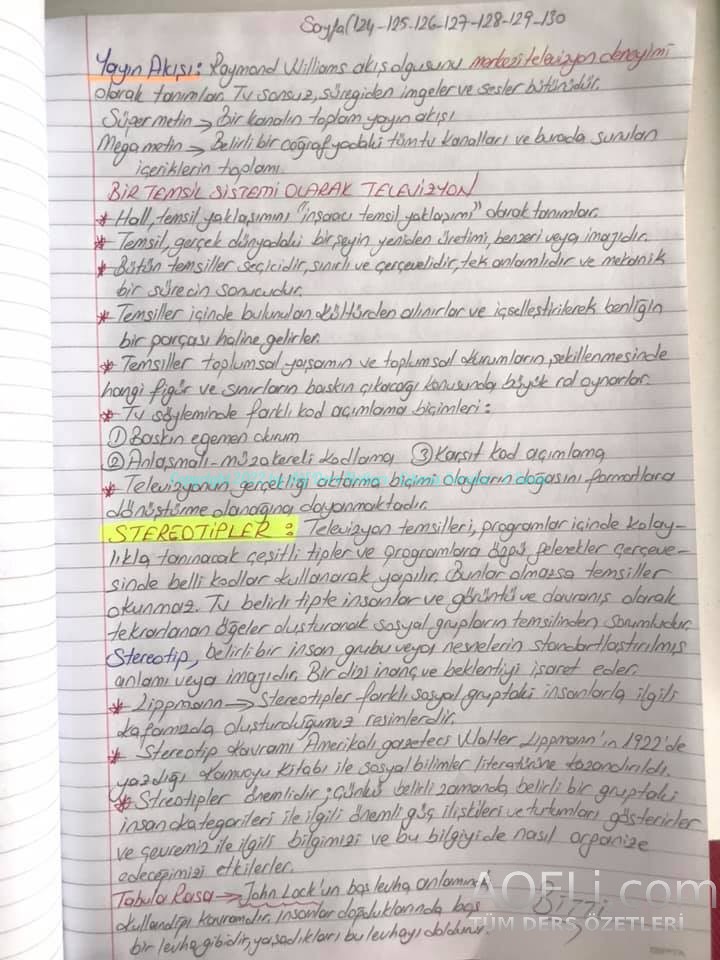 Sayfa(124-125-126-127-128-129-130
Yayın Akışı: Raymond Williams akış olgusunu merkezi televizyon deneyimi
olarak tanımlar. Tv sonsuz, süregiden imgeler ve sesler bütünüdür.
Süper metin → Bir kanalın toplam yayın akışı
Mega metin → Belirli bir coğrafyadaki tüm tv kanalları ve burada sunulan
içeriklerin toplamı.
BİR TEMSİL SİSTEMİ OLARAK TELEVİZYON
* Hall, temsil yaklaşımını "inşacı temsil yaklaşımı" olarak tanımlar.
* Temsil, gerçek dünyadaki bir şeyin yeniden üretimi, benzeri veya imajıdır.
* Bütün temsiller seçicidir, sınırlı ve çerçevelidir, tek anlamlıdır ve mekanik
bir sürecin sonucudur.
* Temsiller içinde bulunulan kültürden alınırlar ve içselleştirilerek benliğin
bir parçası haline gelirler.
* Temsiller toplumsal yaşamın ve toplumsal durumların şekillenmesinde
hangi figür ve sınırların baskın çıkacağı konusunda büyük rol oynarlar.
* Tv söyleminde farklı kod açımlama biçimleri:
① Baskın egemen okuma
② Anlaşmalı-müzakereli kodlama ③ Karşıt kod açımlama
* Televizyonun gerçekliği aktarma biçimi olayların doğasını formatlara
dönüştürme olanağına dayanmaktadır.
STEREOTİPLER: Televizyon temsilleri, programlar içinde kolay-
lıkla tanınacak çeşitli tipler ve programlara özgü gelenekler çerçeve-
sinde belli kodlar kullanarak yapılır. Bunlar olmazsa temsiller
okunmaz. Tv belirli tipte insanlar ve görüntü ve davranış olarak
tekrarlanan öğeler oluşturarak sosyal grupların temsilinden sorumludur.
Stereotip, belirli bir insan grubu veya nesnelerin standartlaştırılmış
anlamı veya imajıdır. Bir dizi inanç ve beklentiyi işaret eder.
* Lippmann → Stereotipler farklı sosyal gruptaki insanlarla ilgili
kafamızda oluşturduğumuz resimlerdir.
* Stereotip kavramı Amerikalı gazeteci Walter Lippmann'ın 1922'de
yazdığı Kamuoyu kitabı ile sosyal bilimler literatürüne kazandırıldı.
* Streotipler önemlidir; çünkü belirli zamanda belirli bir gruptaki
insan kategorileri ile ilgili önemli güç ilişkileri ve tutumları gösterirler
ve çevremiz ile ilgili bilgimizi ve bu bilgiyi de nasıl organize
edeceğimizi etkilerler.
Tabula Rasa → John Lock'un boş levha anlamında
kullandığı kavramdır. insanlar doğduklarında boş
bir levha gibidir, yaşadıkları bu levhayı doldurur.
AOFLi.com
TÜM DERS ÖZETLERİ